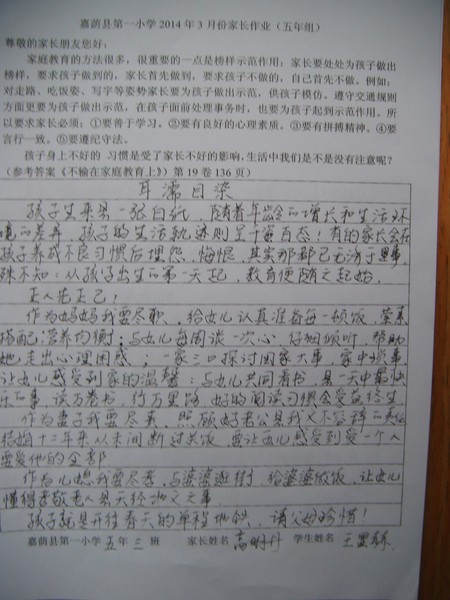 嘉荫县第一小学 2014 年 3 月份家长作业（五年组）
尊敬的家长朋友您好：
家庭教育的方法很多，很重要的一点是榜样示范作用；家长要处处为孩子做出
榜样，要求孩子做到的，家长首先做到，要求孩子不做的，自己首先不做。例如：
对走路、吃饭姿、写字等姿势家长要为孩子做出示范，供孩子模仿。遵守交通规则
方面更要为孩子做出示范，在孩子面前处理事务时，也要为孩子起到示范作用。所
以要求家长必须：①要善于学习。②要有良好的心理素质。③要有拼搏精神。④要
言行一致。⑤要遵纪守法。
孩子身上不好的 习惯是受了家长不好的影响，生活中我们是不是没有注意呢？
（参考答案《不输在家庭教育上》）第 19 卷 136 页）
耳濡目染
孩子生来是一张白纸，随着年龄的增长和生活环
境的差异，孩子的生活轨迹则呈千姿百态！有的家长会在
孩子养成不良习惯后埋怨，悔恨，其实那都已无济于事，
殊不知：从孩子出生的第一天起，教育便随之起始。
正人先正己！
作为妈妈我要尽职，给女儿认真准备每一顿饭，荤素
搭配，营养均衡；与女儿每周谈一次心，仔细倾听，帮助
她走出心理困惑；一家三口探讨国家大事，家中琐事
让女儿感受到家的温馨；与女儿共同看书，是一天中最快
乐的事，读万卷书，行万里路，好的阅读习惯会受益终生
作为妻子我要尽责，照顾好老公是我义不容辞的责任
结婚十二年来从未间断过美饭，要让女儿感受到爱一个人
要爱他的全部
作为儿媳我要尽孝，与婆婆逛街，给婆婆做饭，让女儿
懂得孝敬老人是天经地义之事
孩子就是开往春天的单程地铁，请父母珍惜！
嘉荫县第一小学 五 年 二 班 家长姓名 高明丹 学生姓名 王